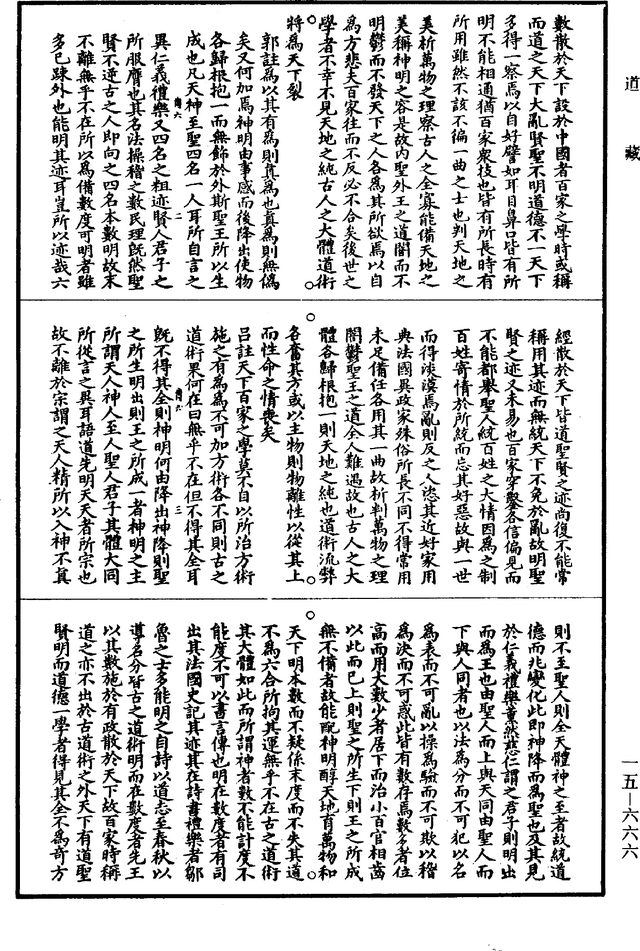 道藏
數散於天下設於中國者百家之學時或稱
而道之天下大亂賢聖不明道德不一天下
多得一察焉以自好譬如耳目鼻口皆有所
明不能相通猶百家衆技也皆有所長時有
所用雖然不該不徧一曲之士也判天地之
美析萬物之理察古人之全寡能備天地之
美稱神明之容是故內聖外王之道闇而不
明鬱而不發天下之人各為其所欲焉以自
為方悲夫百家往而不反必不合矣後世之
學者不幸不見天地之純古人之大體道術
將為天下裂
郭註為以其有為則真為也真為則無偽
矣又何加焉神明由事感而後降出使物
各歸根抱一而無飾於外斯聖王所以生
成也凡天神至聖四名一人耳所自言之
異仁義禮樂又四名之粗迹賢人君子之
所服膺也其名法操稽之數民理既然聖
賢不逆古之人即向之四名本數明故末
不離無乎不在所以為備數度可明者雖
多已踈外也能明其迹耳豈所以迹哉六
經散於天下皆道聖賢之迹尚復不能常
稱用其迹而無統天下不免於亂故明聖
賢之迹又未易也百家穿鑿各信偏見而
不能都舉聖人統百姓之大情因為之制
百姓寄情於所統而忘其好惡故與一世
而得淡漠焉亂則反之人恣其近好家用
典法國異政家殊俗所長不同不得常用
未足備任各用其一曲故析判萬物之理
闇鬱聖王之道全人難遇故也古人之大
體各歸根抱一則天地之純也道術流弊
各奮其方或以主物則物離性以從其上
而性命之情喪矣
呂註天下百家之學莫不自以所治方術
施之有為為不可加方術各不同則古之
道術果何在曰無乎不在但不得其全耳
既不得其全則神明何由降出神降則聖
之所生明出則王之所成一者神明之主
所謂天人神人至人聖人君子其體大同
所從言之異耳語道先明天天者所宗也
故不離於宗謂之天人精所以入神不真
則不至聖人則全天體神之至者故統道
德而兆變化此即神降而為聖也及其見
於仁義禮樂薰然慈仁謂之君子則明出
而為王也由聖人而上與天同由聖人而
下與人同者也以法為分而不可犯以名
為表而不可亂以操為驗而不可欺以稽
為決而不可惑此皆有數存焉數多者位
高而用大數少者居下而治小百官相齒
以此而已上則聖之所生下則王之所成
無不備者故能配神明醇天地育萬物和
天下明本數而不疑係末度而不失其道
不為六合所拘其運無乎不在古之道術
其大體如此而所謂神者數不能計度不
能度不可以書言傳也明在數度者有司
出其法國史記其迹其在詩書禮樂者鄒
魯之士多能明之自詩以道志至春秋以
導名分皆古之道術明而在數度者先王
以其數施於有政散於天下故百家時稱
道之亦不出於古道術之外天下有道聖
賢明而道德一學者得見其全不為奇方
一五—六六六